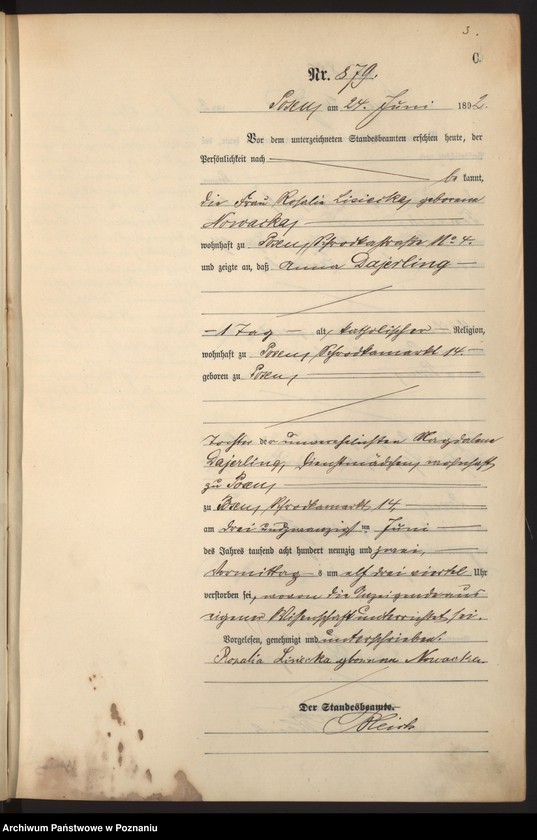 3.
C.
Nr. 879.
Posen, am 24. Juni 1892.
Vor dem unterzeichneten Standesbeamten erschien heute, der
Persönlichkeit nach
bekannt,
die Frau Rosalie Lisiecka, geborene
Nowacka,
wohnhaft zu Posen, Schrodkastraße No 4.
und zeigte an, daß Anna Dajerling
1 Tag alt, katholischer Religion,
wohnhaft zu Posen, Schrodkamarkt 14.
geboren zu Posen,
Tochter der unverehelichten Magdalena
Dajerling, Dienstmädchen, wohnhaft
zu Posen,
zu Posen, Schrodkamarkt 14,
am drei und zwanzigsten Juni
des Jahres tausend acht hundert neunzig und zwei,
Vormittags um elf drei viertel Uhr
verstorben sei, wovon die Anzeigende aus
eigener Wissenschaft unterrichtet sei.
Vorgelesen, genehmigt und unterschrieben.
Rozalia Lisiecka geborene Nowacka
Der Standesbeamte.
Archiwum Państwowe w Poznaniu